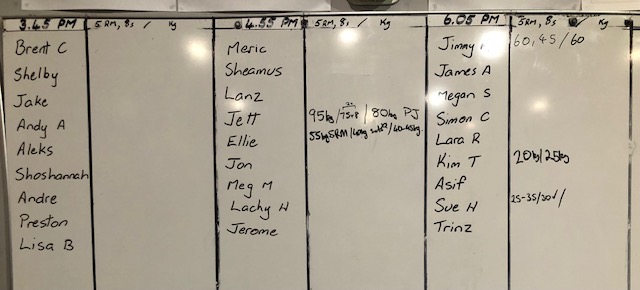 3.45 PM 5RM, 8s / Kg
Brent C
Shelby
Jake
Andy A
Aleks
Shoshannah
Andre
Preston
Lisa B
4.55 PM 5RM, 8s / Kg
Meric
Sheamus
Lanz
Jett 95kg / 80kg PJ
Ellie 55kg 5RM
Jon
Meg M
Lachy H
Jerome
6.05 PM 5RM, 8s Kg
Jimmy 60, 45 / 60
James A
Megan S
Simon C
Lara R
Kim T 20kg/25kg
Asif
Sue H 25-35/
Trinz